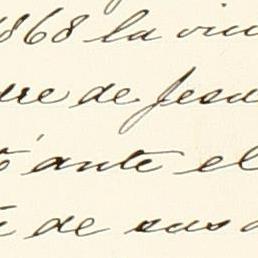 1868 la viu
dre de Jesu
ó ante el
de sus